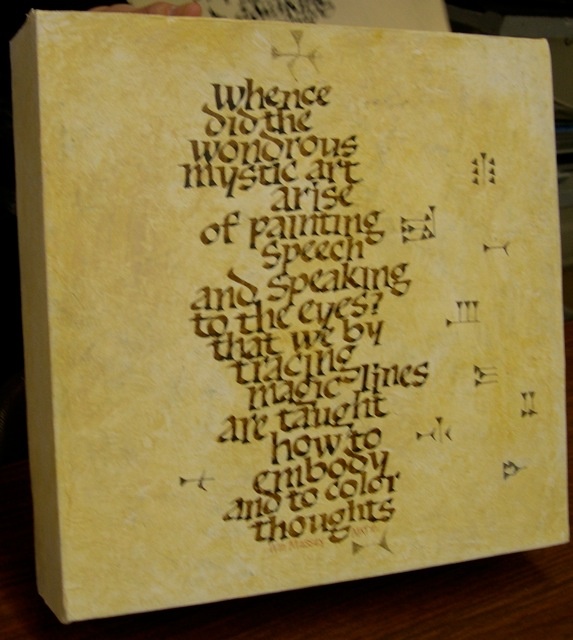 whence
did the
wondrous
mystic art
arise
of painting
speech
and speaking
to the eyes?
that we by
tracing
magic-lines
are taught
how to
embody
and to color
thoughts